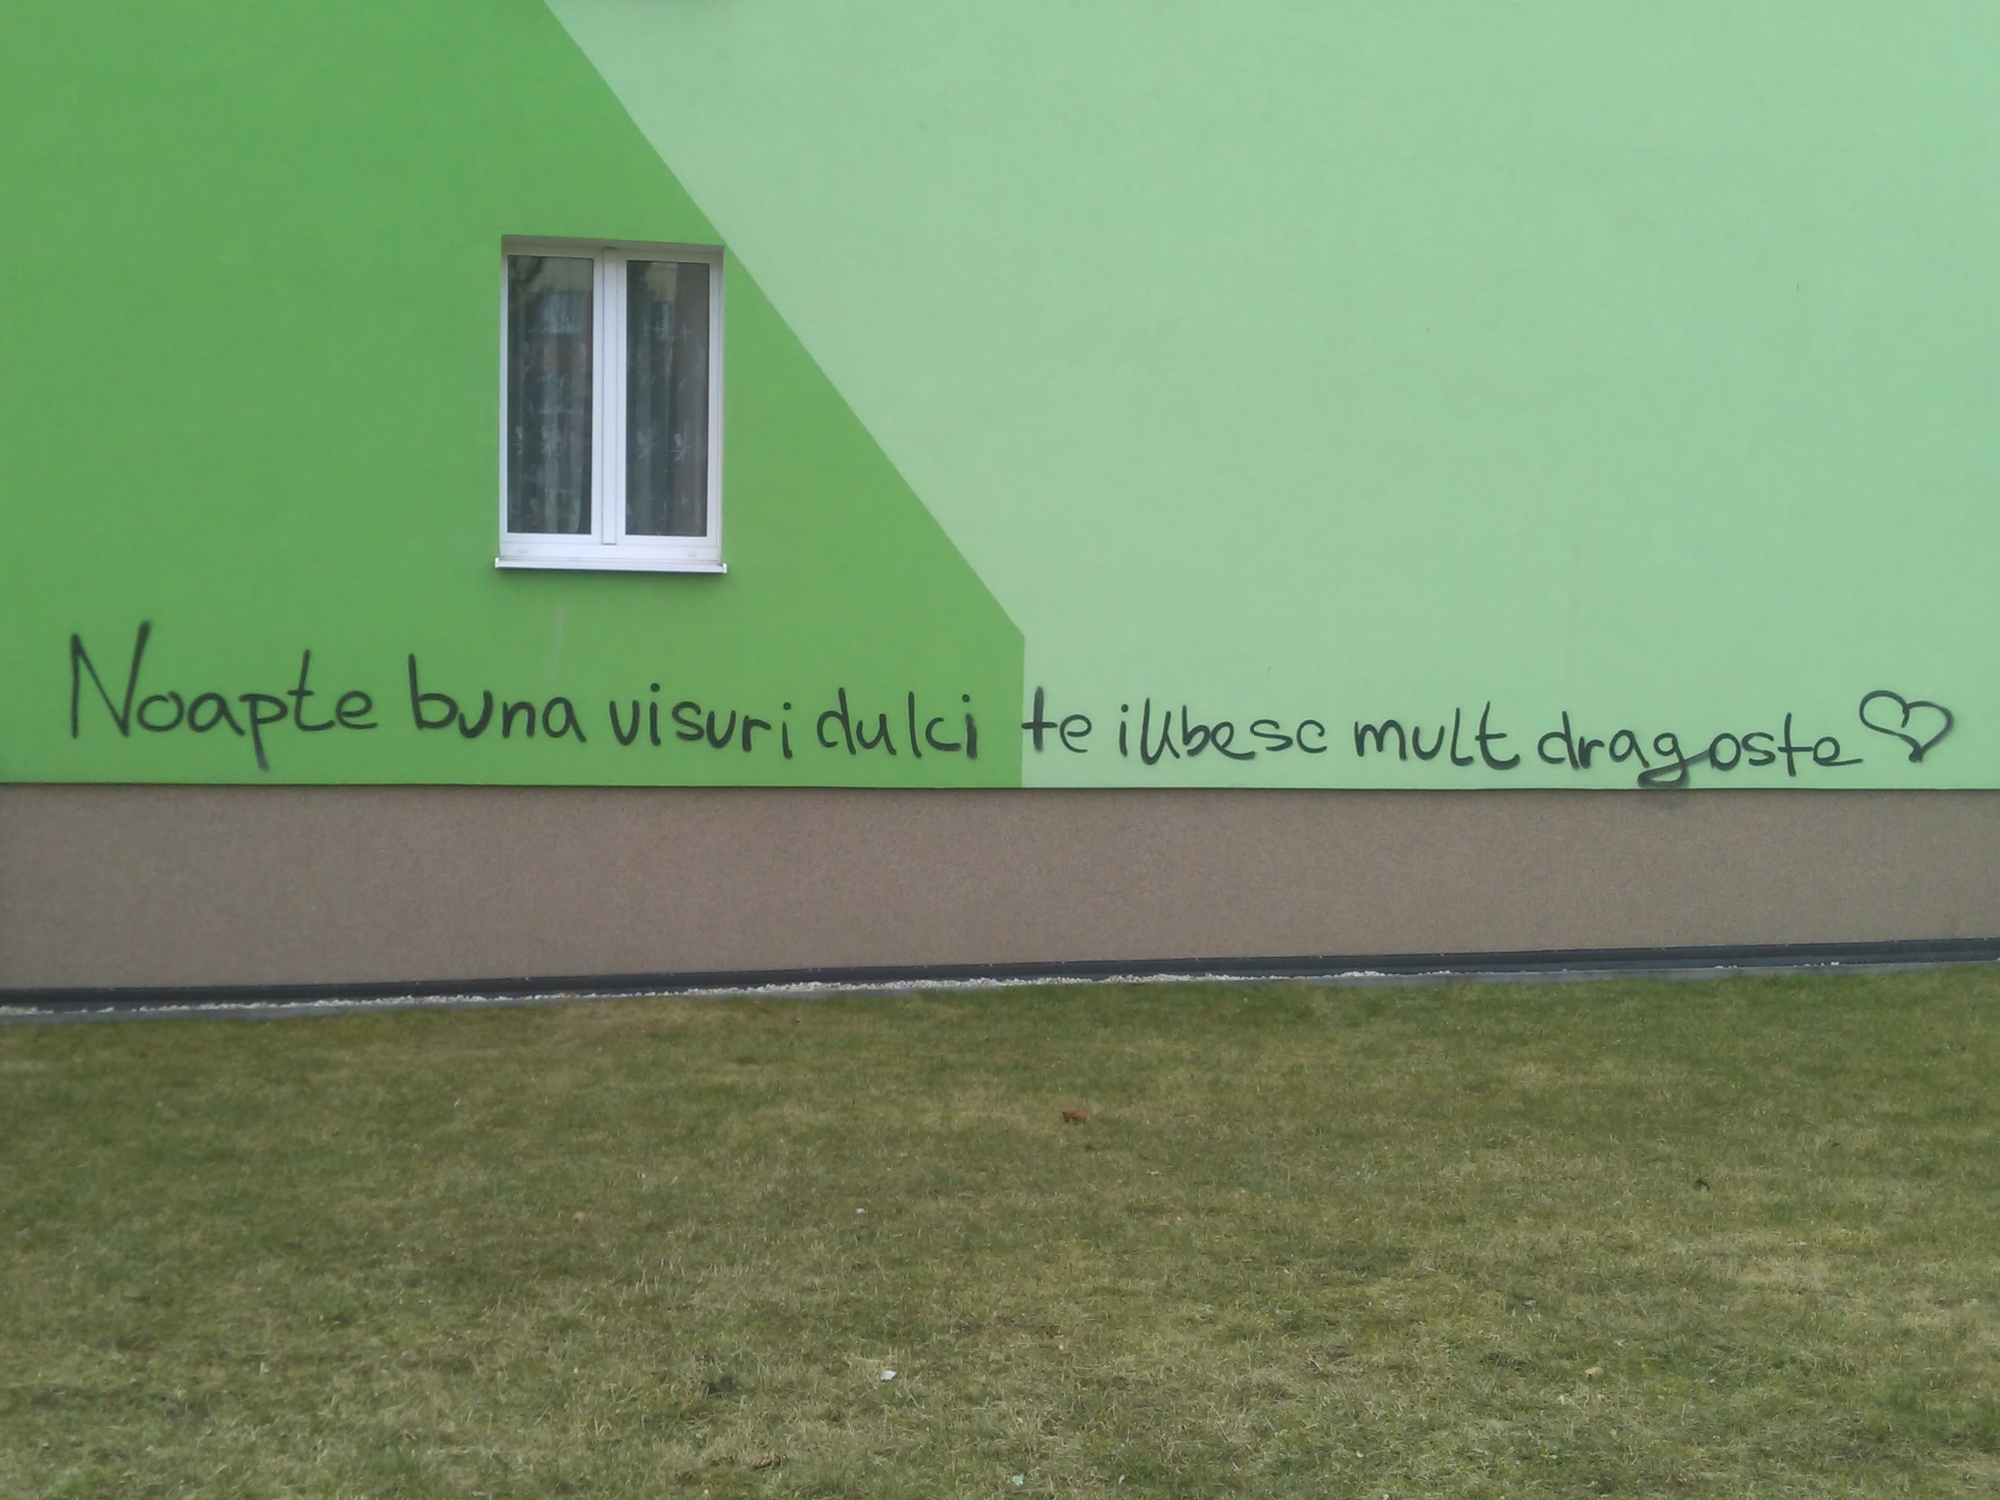 Noapte buna visuri dulci te iubesc mult dragoste ♡